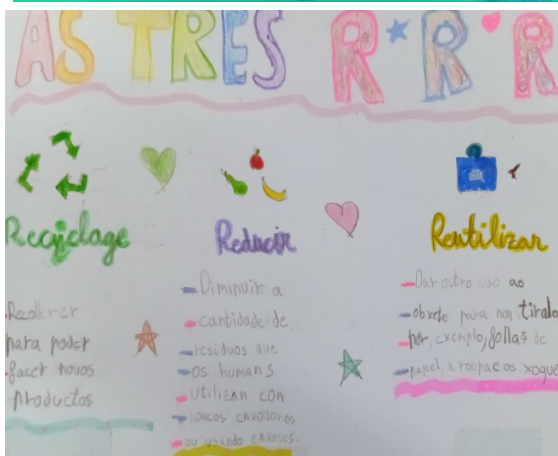 AS TRES R R R
Reciclage
Recollerer
para poder
facer novos
productos
Reducir
Diminuir a
cantidade de
residuos que
os humans
utilizan con
poucos envasorios
ou usando envases.
Reutilizar
Dar outro uso ao
obxeto para non tiralo
por, exemplo, follas de
papel, a roupa e os xogue